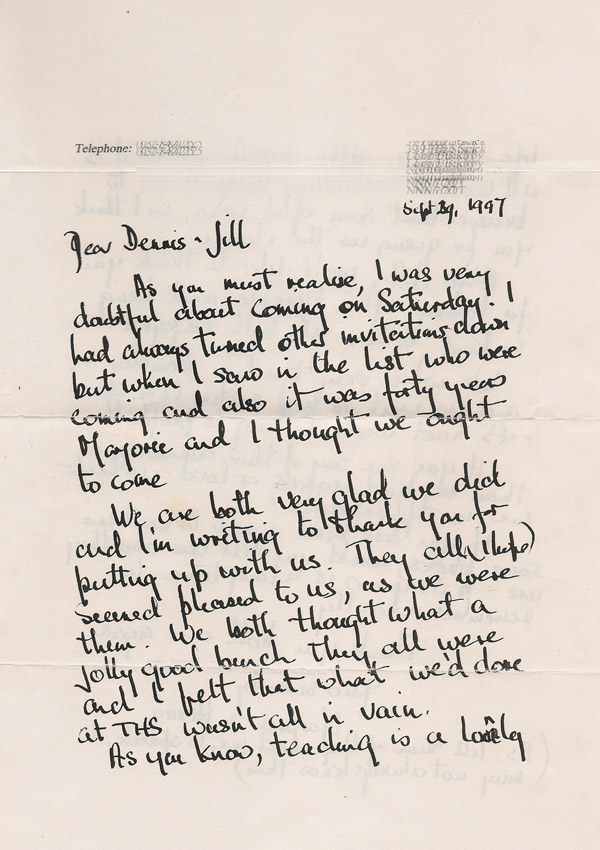 Telephone:
Sept 29, 1997
Dear Dennis - Jill
As you must realise, I was very
doubtful about coming on Saturday. I
had always turned other invitations down
but when I saw in the list who were
coming and also it was forty years
Marjorie and I thought we ought
to come
We are both very glad we did
and I'm writing to thank you for
putting up with us. They all (I hope)
seemed pleased to us, as we were
them. We both thought what a
jolly good bunch they all were
and I felt that what we'd done
at THS wasn't all in vain.
As you know, teaching is a lonely